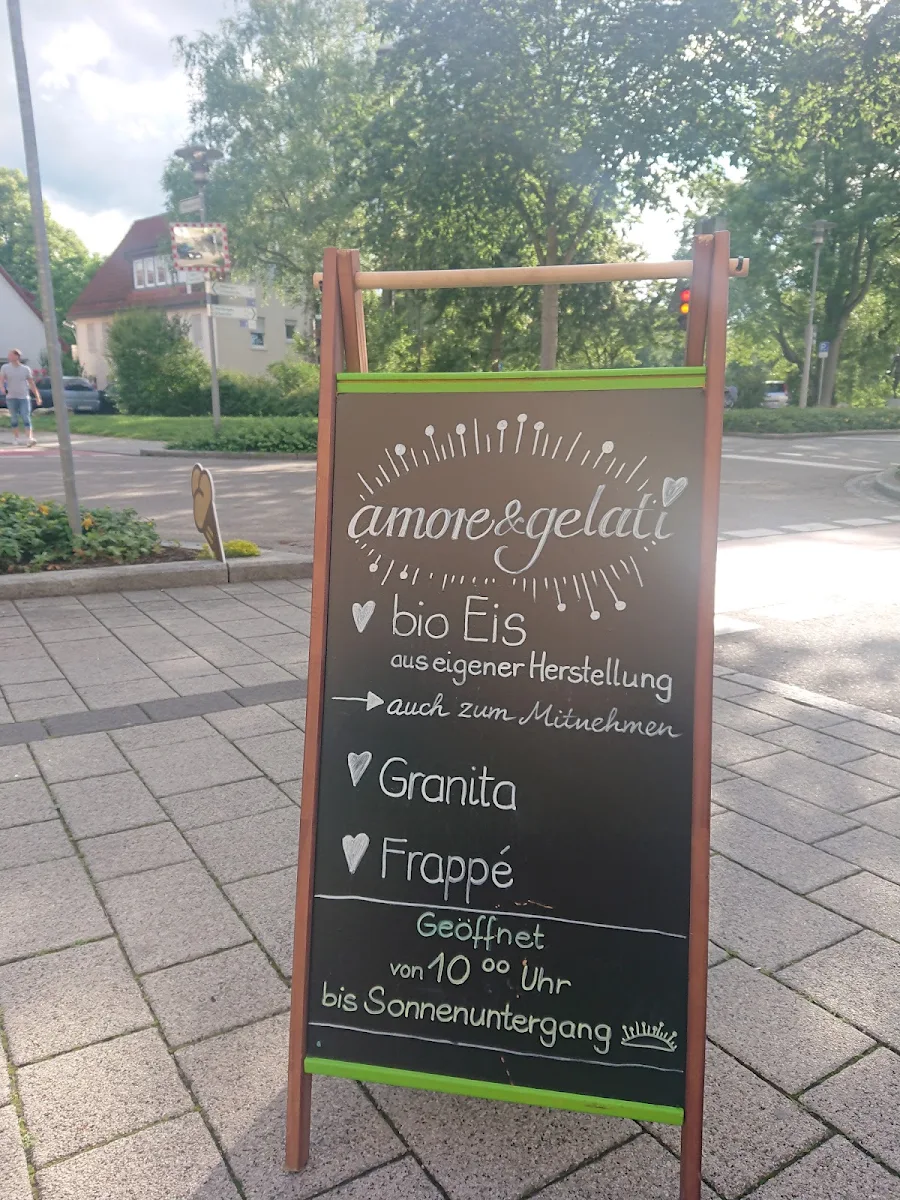 amore&gelati
bio Eis
aus eigener Herstellung
auch zum Mitnehmen
Granita
Frappé
Geöffnet
von 10 ⁰⁰ Uhr
bis Sonnenuntergang